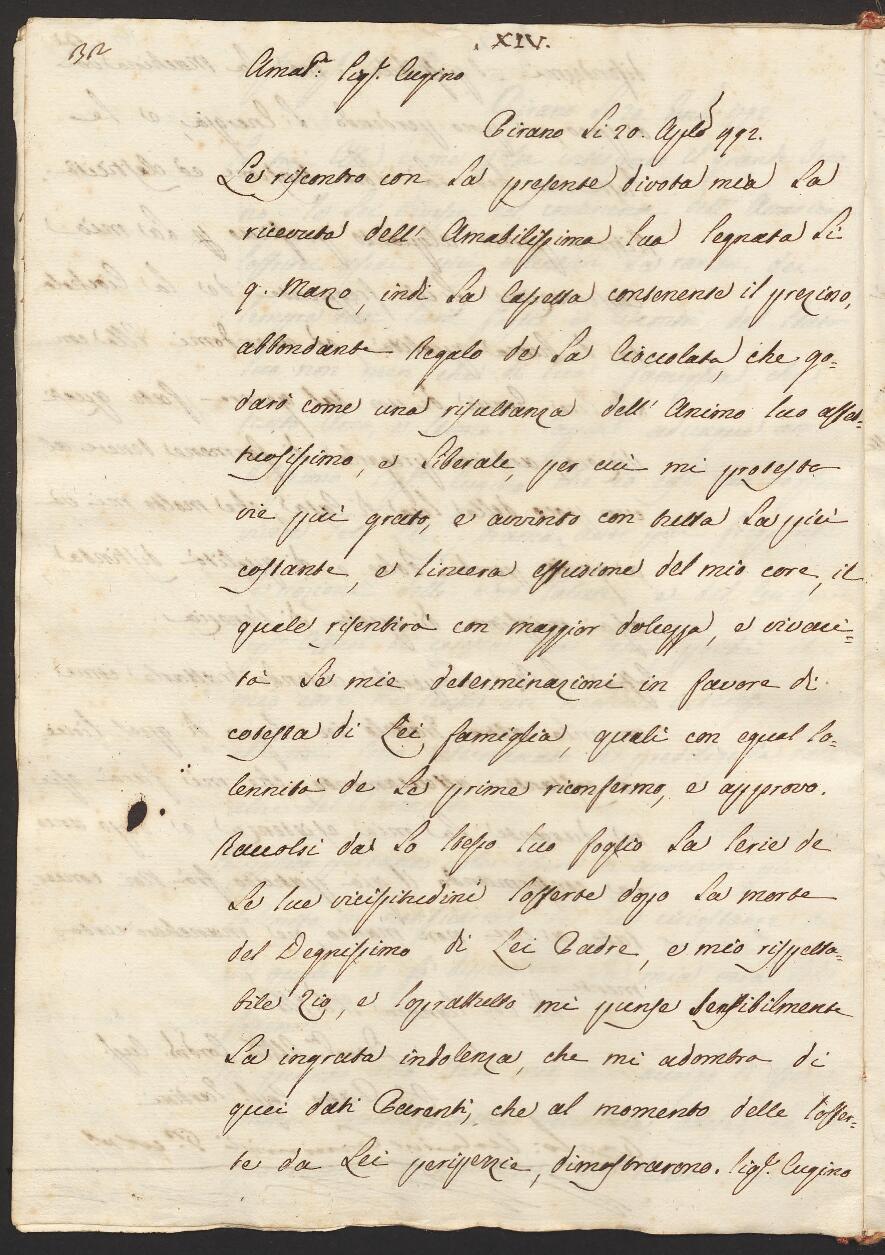 32
XIV.
Amat.mo Sig.r Cugino
Pirano li 20. Aple 792.
Le riscontro con la presente divota mia la
ricevuta dell' Amabilissima sua segnata li
9. Marzo, indi la Cassetta contenente il prezioso,
abbondante Regalo de la Cioccolata, che go=
darò come una risultanza dell' Animo suo affet=
tuosissimo, e liberale, per cui mi protesto
vie più grato, e avvinto con tutta la più
costante, e sincera effusione del mio core, il
quale risentirà con maggior dolcezza, e vivaci=
tà le mie determinazioni in favore di
cotesta di Lei famiglia, quali con egual so=
lennità de le prime riconfermo, e approvo.
Raccolsi da lo stesso suo foglio la serie de
le sue vicissitudini sofferte dopo la morte
del Degnissimo di Lei Padre, e mio rispetta=
bile Zio, e soprattutto mi punse sensibilmente
la ingrata indolenza, che mi adombra di
quei dati Parenti, che al momento delle soffer=
te da Lei peripezie, dimostrarono. Sig.r Cugino